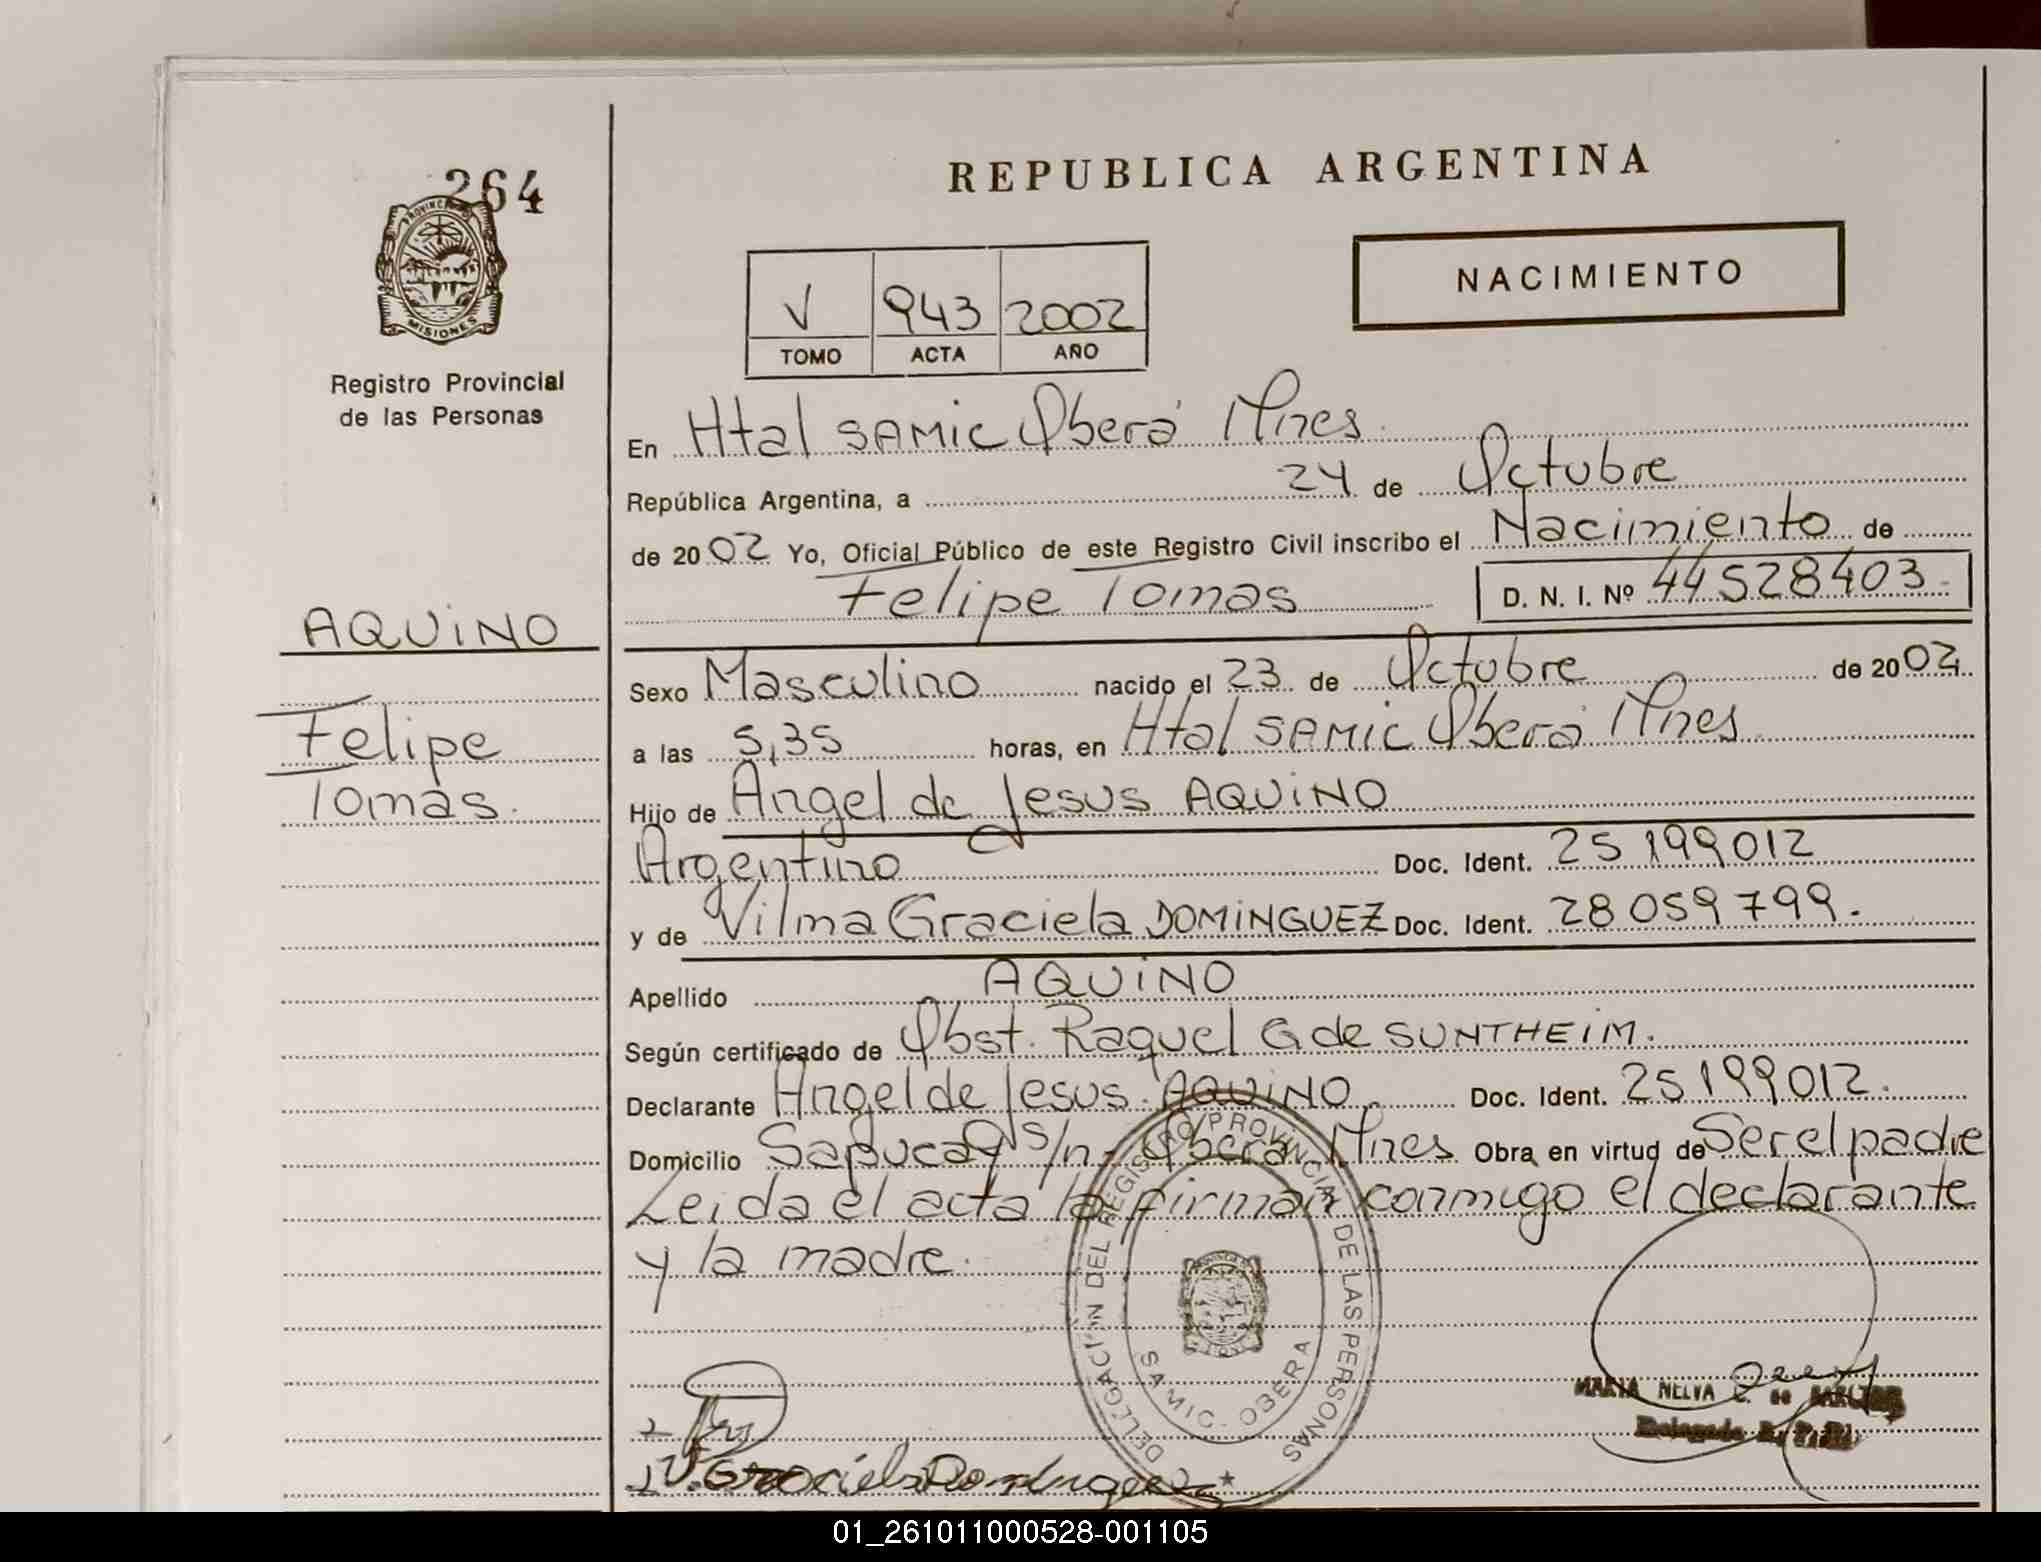 264
PROVINCIA DE
MISIONES
Registro Provincial
de las Personas
AQUINO
Felipe
Tomás.
REPUBLICA ARGENTINA
NACIMIENTO
V 943 2002
TOMO ACTA AÑO
En Htal SAMIC Oberá Mnes
República Argentina, a 24 de Octubre
de 2002 Yo, Oficial Público de este Registro Civil inscribo el Nacimiento de
Felipe Tomás D. N. I. Nº 44528403.
Sexo Masculino nacido el 23 de Octubre de 2002.
a las 5,35 horas, en Htal SAMIC Oberá Mnes
Hijo de Angel de Jesus AQUINO
Argentino Doc. Ident. 25199012
y de Vilma Graciela DOMINGUEZ Doc. Ident. 28059799.
Apellido AQUINO
Según certificado de Obst. Raquel G de SUNTHEIM.
Declarante Angel de Jesus AQUINO Doc. Ident. 25199012.
Domicilio Sapucay s/n- Oberá Mnes Obra en virtud de Ser el padre
Leida el acta la firman conmigo el declarante
y la madre.
DELEGACION DEL REGISTRO PROVINCIAL DE LAS PERSONAS
SAMIC - OBERA
MARIA NELVA
Delegada R. P. P.
V. Graciela Dominguez
01_261011000528-001105